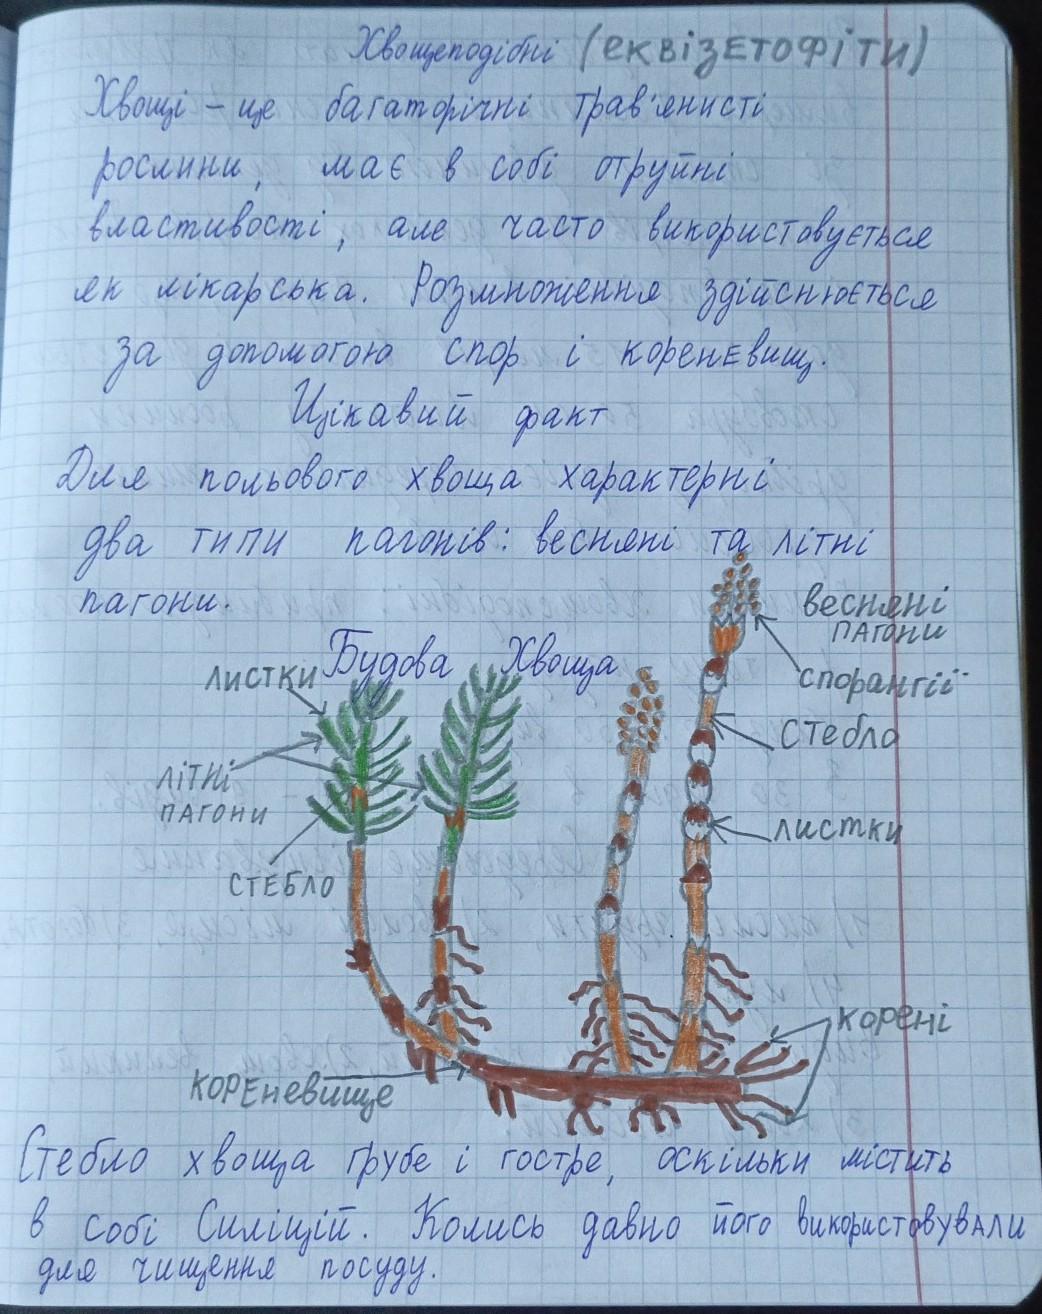 Хвощеподібні (еквізетофіти)
Хвощі - це багаторічні трав'янисті
рослини, має в собі отруйні
властивості, але часто використовується
як лікарська. Розмноження здійснюється
за допомогою спор і кореневищ.
Цікавий факт
Для польового хвоща характерні
два типи пагонів: весняні та літні
пагони.
весняні
пагони
Будова Хвоща
листки
спорангії
стебло
літні
пагони
листки
стебло
корені
кореневище
Стебло хвоща грубе і гостре, оскільки містить
в собі Силіцій. Колись давно його використовували
для чищення посуду.